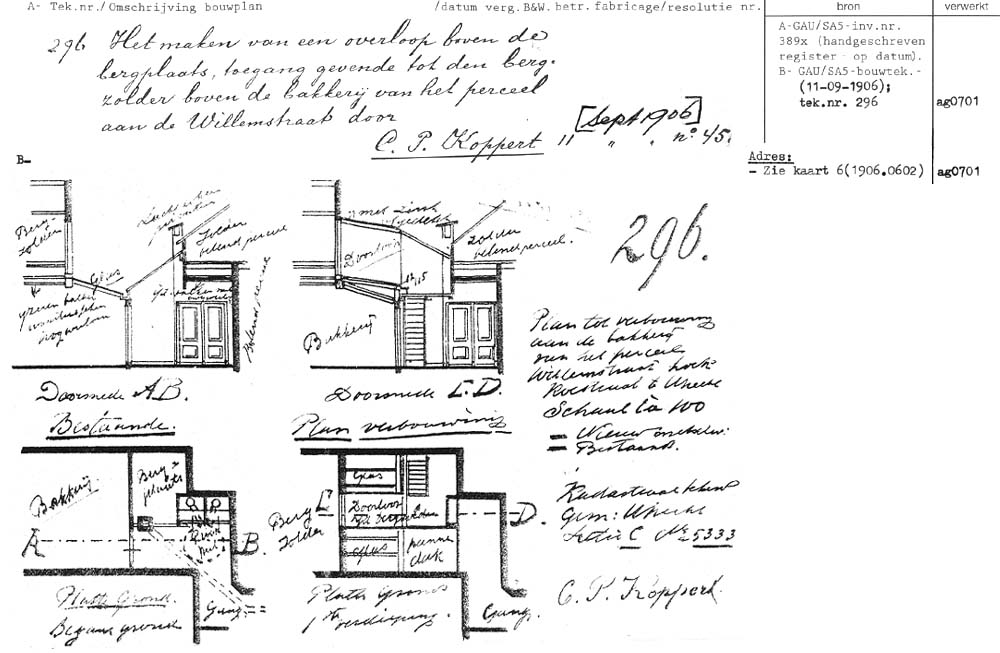 A- Tek.nr./Omschrijving bouwplan /datum verg.B&W.betr.fabricage/resolutie nr.
bron verwerkt
296 Het maken van een overloop boven de
bergplaats, toegang gevende tot den berg-
zolder boven de bakkerij van het perceel
aan de Willemstraat door
[Sept 1906]
C. P. Koppert 11 " " no 45.
A-GAU/SA5-inv.nr.
389x (handgeschreven
register - op datum).
B- GAU/SA5-bouwtek.-
(11-09-1906);
tek.nr. 296 ag0701
Adres:
- Zie kaart 6(1906.0602) ag0701
B-
Berg-
zolder
Zolder
belend perceel
Glas
ijzeren balken
Belend perceel
Doorsnede A.B.
Bestaande.
met zink
Doorloop
zolder
belend perceel.
Bakkerij
Doorsnede C.D.
Plan verbouwing
296.
Plan tot verbouwing
aan de bakkerij
van het perceel
Willemstraat hoek
te Utrecht
Schaal 1 à 100
= Nieuw
= Bestaand.
Kadastraal bekend
Gem: Utrecht
Sectie C No 5333
C. P. Koppert
Bakkerij
Berg-
plaats
A B
Gang
Platte Grond.
Begane grond
Berg
zolder
C D.
Glas
Doorloop
Glas
pannen
dak
Platte Grond
1e verdieping.
Gang.